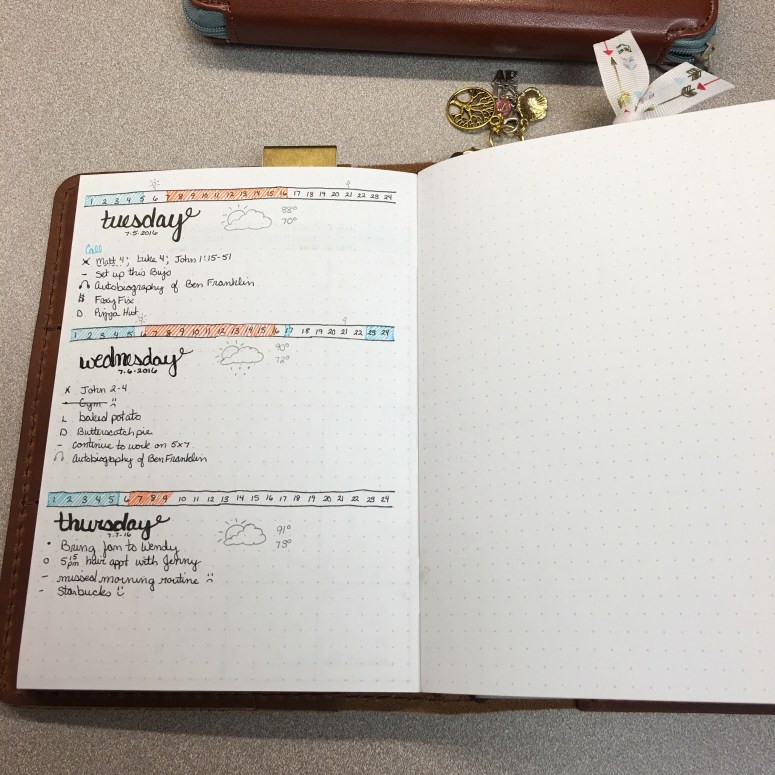 1 2 3 4 5 6 7 8 9 10 11 12 13 14 15 16 17 18 19 20 21 22 23 24
tuesday
7.5.2016
88°
70°
Call
x Matt 4; Luke 4; John 1:15-51
- Set up this Bujo
Autobiography of Ben Franklin
Foxy Fix
D Pizza Hut
1 2 3 4 5 6 7 8 9 10 11 12 13 14 15 16 17 18 19 20 21 22 23 24
wednesday
7.6.2016
90°
72°
x John 2-4
• Gym :(
L baked potato
D Butterscotch pie
- continue to work on 5x7
Autobiography of Ben Franklin
1 2 3 4 5 6 7 8 9 10 11 12 13 14 15 16 17 18 19 20 21 22 23 24
thursday
7.7.16
91°
73°
• Bring Jan to Wendy
o 5:15 pm hair appt with Jenny
- missed morning routine :(
- Starbucks :)